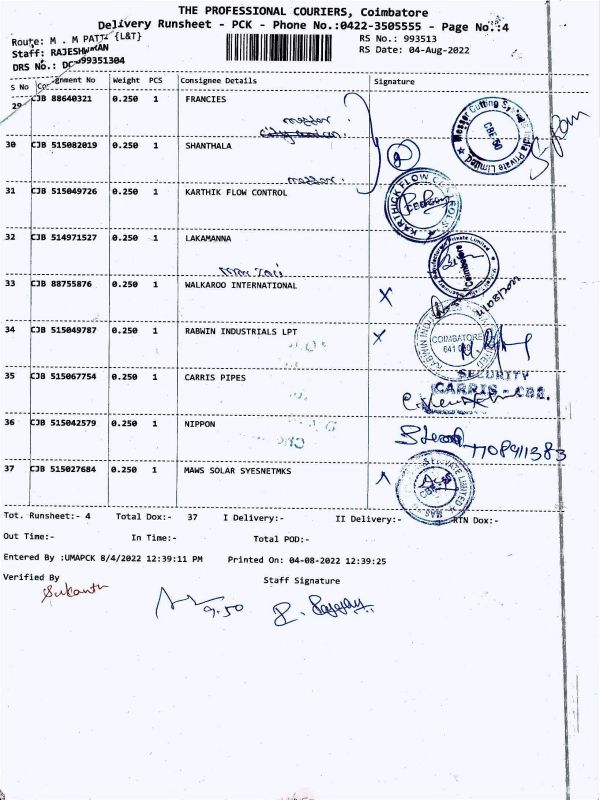 THE PROFESSIONAL COURIERS, Coimbatore
Delivery Runsheet - PCK - Phone No.:0422-3505555 - Page No.:4
Route: M . M PATTI {L&T}
RS No.: 993513
Staff: RAJESHWARAN
RS Date: 04-Aug-2022
DRS No.: DC 99351304
S No gnment No Weight PCS Consignee Details Signature
29 CJB 88640321 0.250 1 FRANCIES
messer
30 CJB 515082019 0.250 1 SHANTHALA
messer
31 CJB 515049726 0.250 1 KARTHIK FLOW CONTROL
32 CJB 514971527 0.250 1 LAKAMANNA
33 CJB 88755876 0.250 1 WALKAROO INTERNATIONAL
34 CJB 515049787 0.250 1 RABWIN INDUSTRIALS LPT
COIMBATORE
641
35 CJB 515067754 0.250 1 CARRIS PIPES
SECURITY
CARRIS - CBE.
36 CJB 515042579 0.250 1 NIPPON
7708911383
37 CJB 515027684 0.250 1 MAWS SOLAR SYESNETMKS
Tot. Runsheet:- 4 Total Dox:- 37 I Delivery:- II Delivery:- RTN Dox:-
Out Time:- In Time:- Total POD:-
Entered By :UMAPCK 8/4/2022 12:39:11 PM Printed On: 04-08-2022 12:39:25
Verified By Staff Signature
Sukanth
9.50